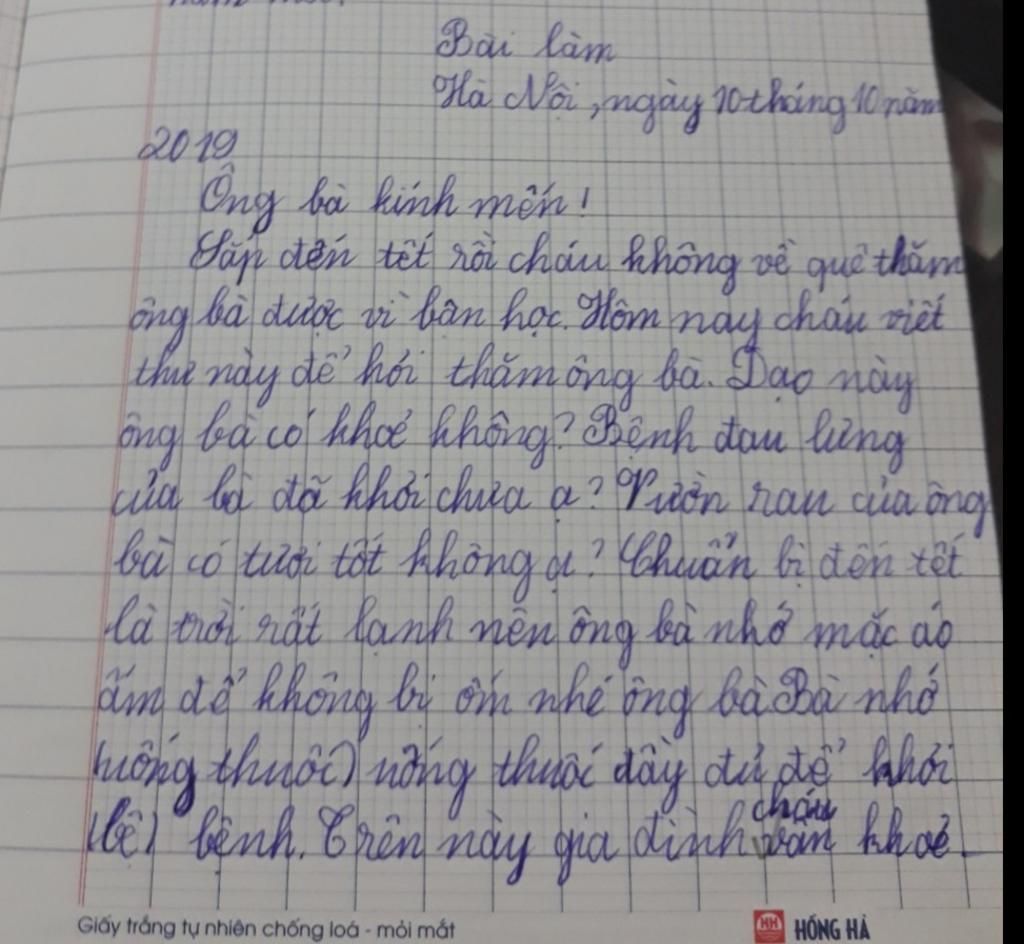 Bài làm
Hà Nội, ngày 10 tháng 10 năm
2019
Ông bà kính mến!
Sắp đến tết rồi cháu không về quê thăm
ông bà được vì bận học. Hôm nay cháu viết
thư này để hỏi thăm ông bà. Dạo này
ông bà có khoẻ không? Bệnh đau lưng
của bà đã khỏi chưa ạ? Vườn rau của ông
bà có tươi tốt không ạ? Chuẩn bị đến tết
là trời rất lạnh nên ông bà nhớ mặc áo
ấm để không bị ốm nhé ông bà. Bà nhớ
(uống thuốc) uống thuốc đầy đủ để khỏi
(bệ) bệnh. Trên này gia đình cháu vẫn khoẻ
Giấy trắng tự nhiên chống loá - mỏi mắt
HH HỒNG HÀ